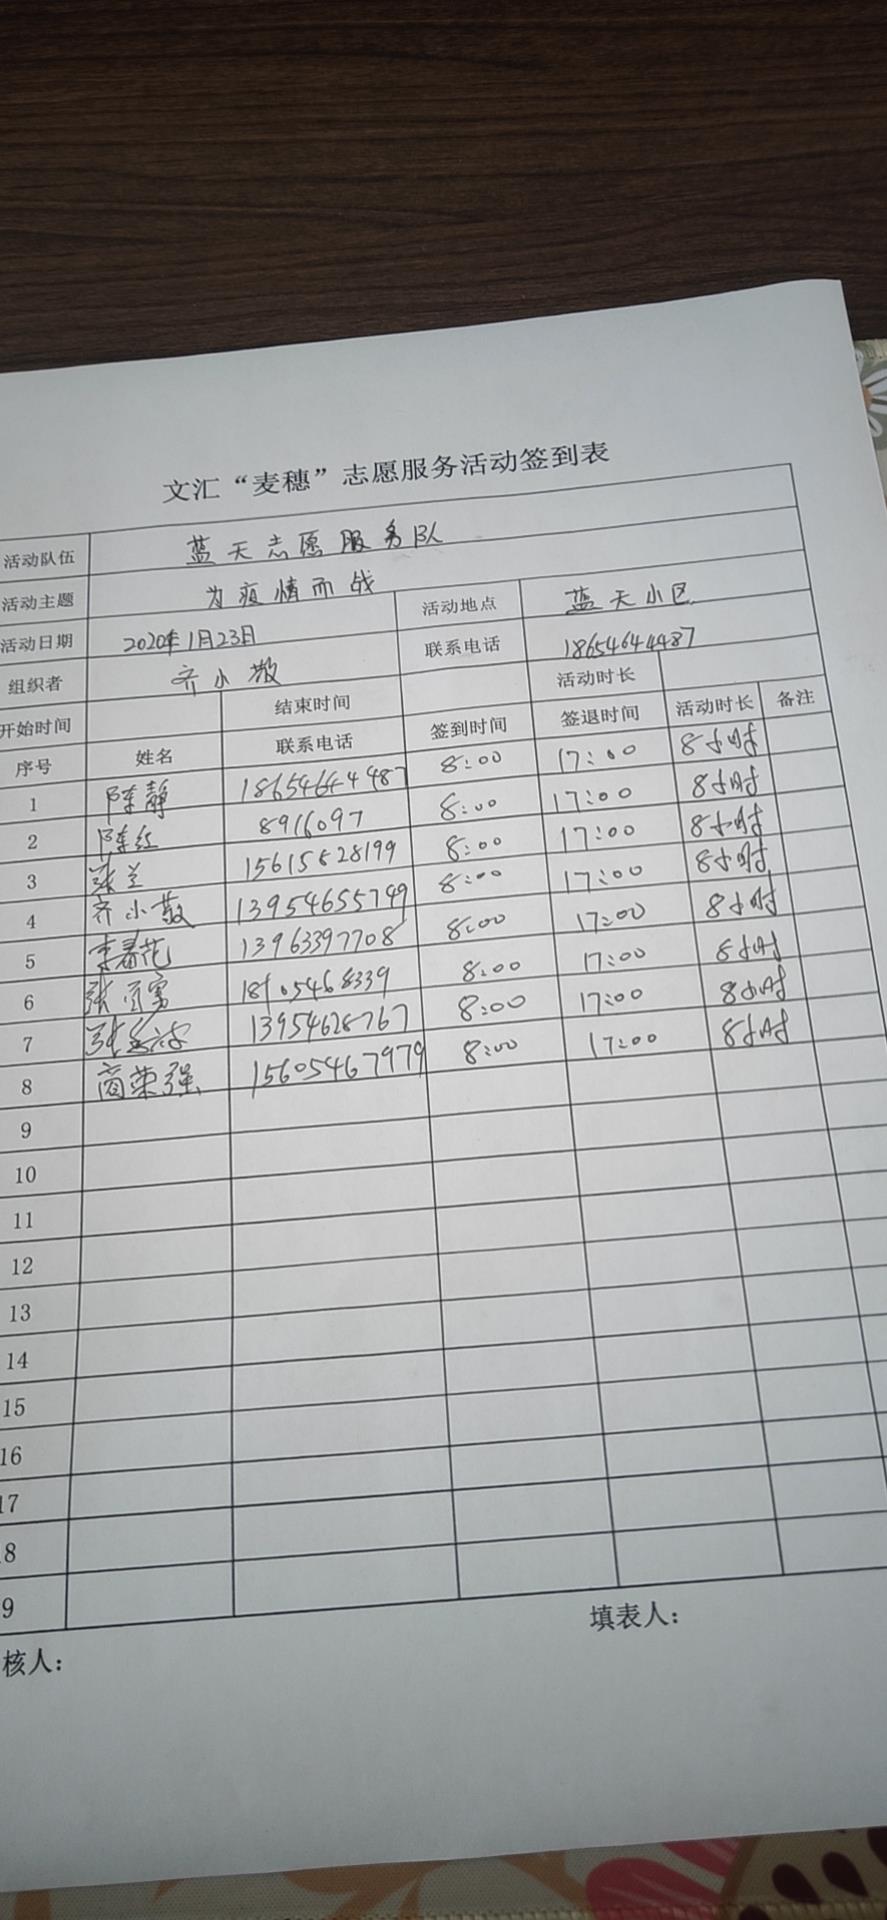 文汇“麦穗”志愿服务活动签到表
活动队伍 蓝天志愿服务队
活动主题 为疫情而战 活动地点 蓝天小区
活动日期 2020年1月23日 联系电话 18654644487
组织者 齐小敬 活动时长
开始时间 结束时间
序号 姓名 联系电话 签到时间 签退时间 活动时长 备注
1 陈静 18654644487 8:00 17:00 8小时
2 陈红 8916097 8:00 17:00 8小时
3 张兰 15615828199 8:00 17:00 8小时
4 齐小敬 13954655749 8:00 17:00 8小时
5 李春花 13963397708 8:00 17:00 8小时
6 张 18105468339 8:00 17:00 8小时
7 13954628767 8:00 17:00 8小时
8 商荣强 15605467979 8:00 17:00 8小时
9
10
11
12
13
14
15
16
17
8
9
核人： 填表人：